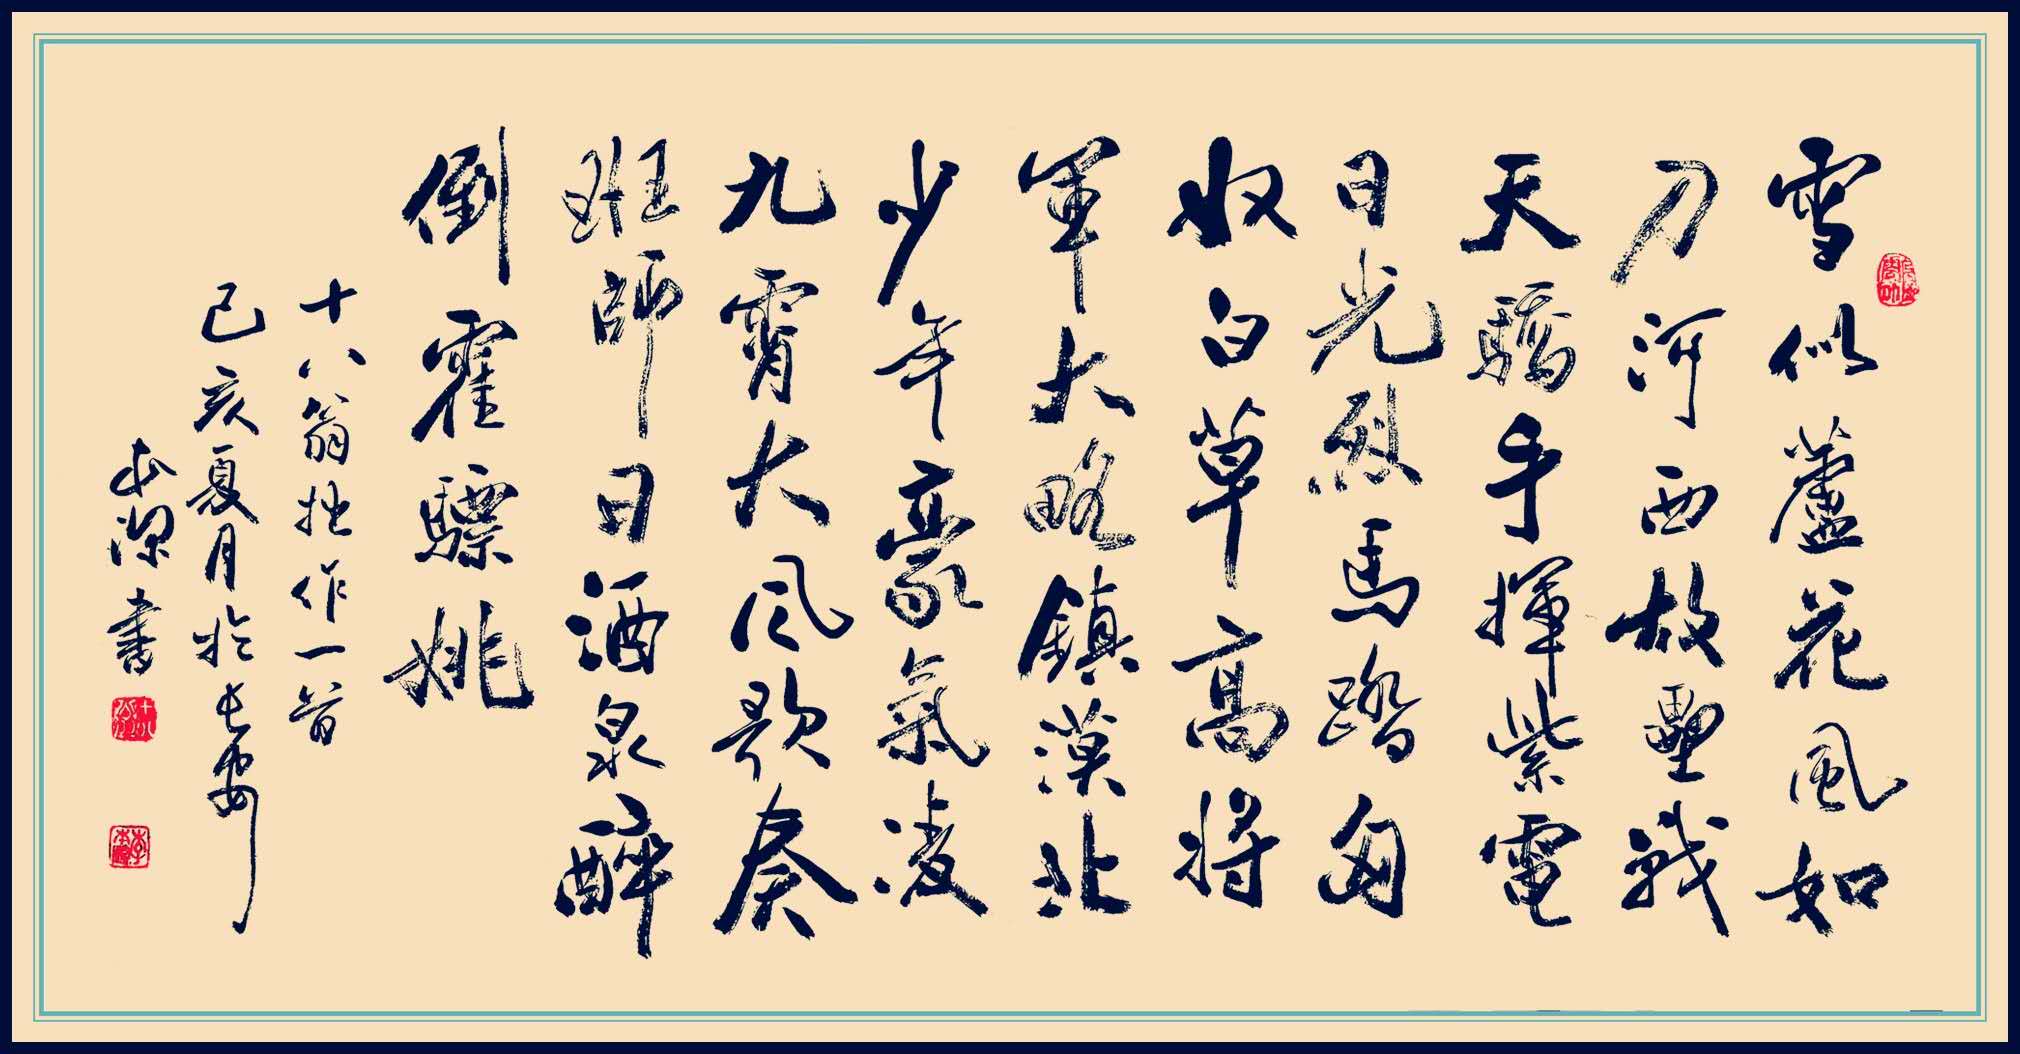 雪似蘆花風如
刀河西故壘戰
天驕手揮紫電
日光烈馬踏匈
奴白草高將
軍大略鎮漠北
少年豪氣凌
九霄大风歌奏
班師日酒泉醉
倒霍驃姚
十八翁拙作一首
己亥夏月於长安
本深書